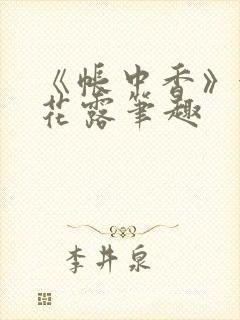 《帐中香》
花露笔趣
李井泉